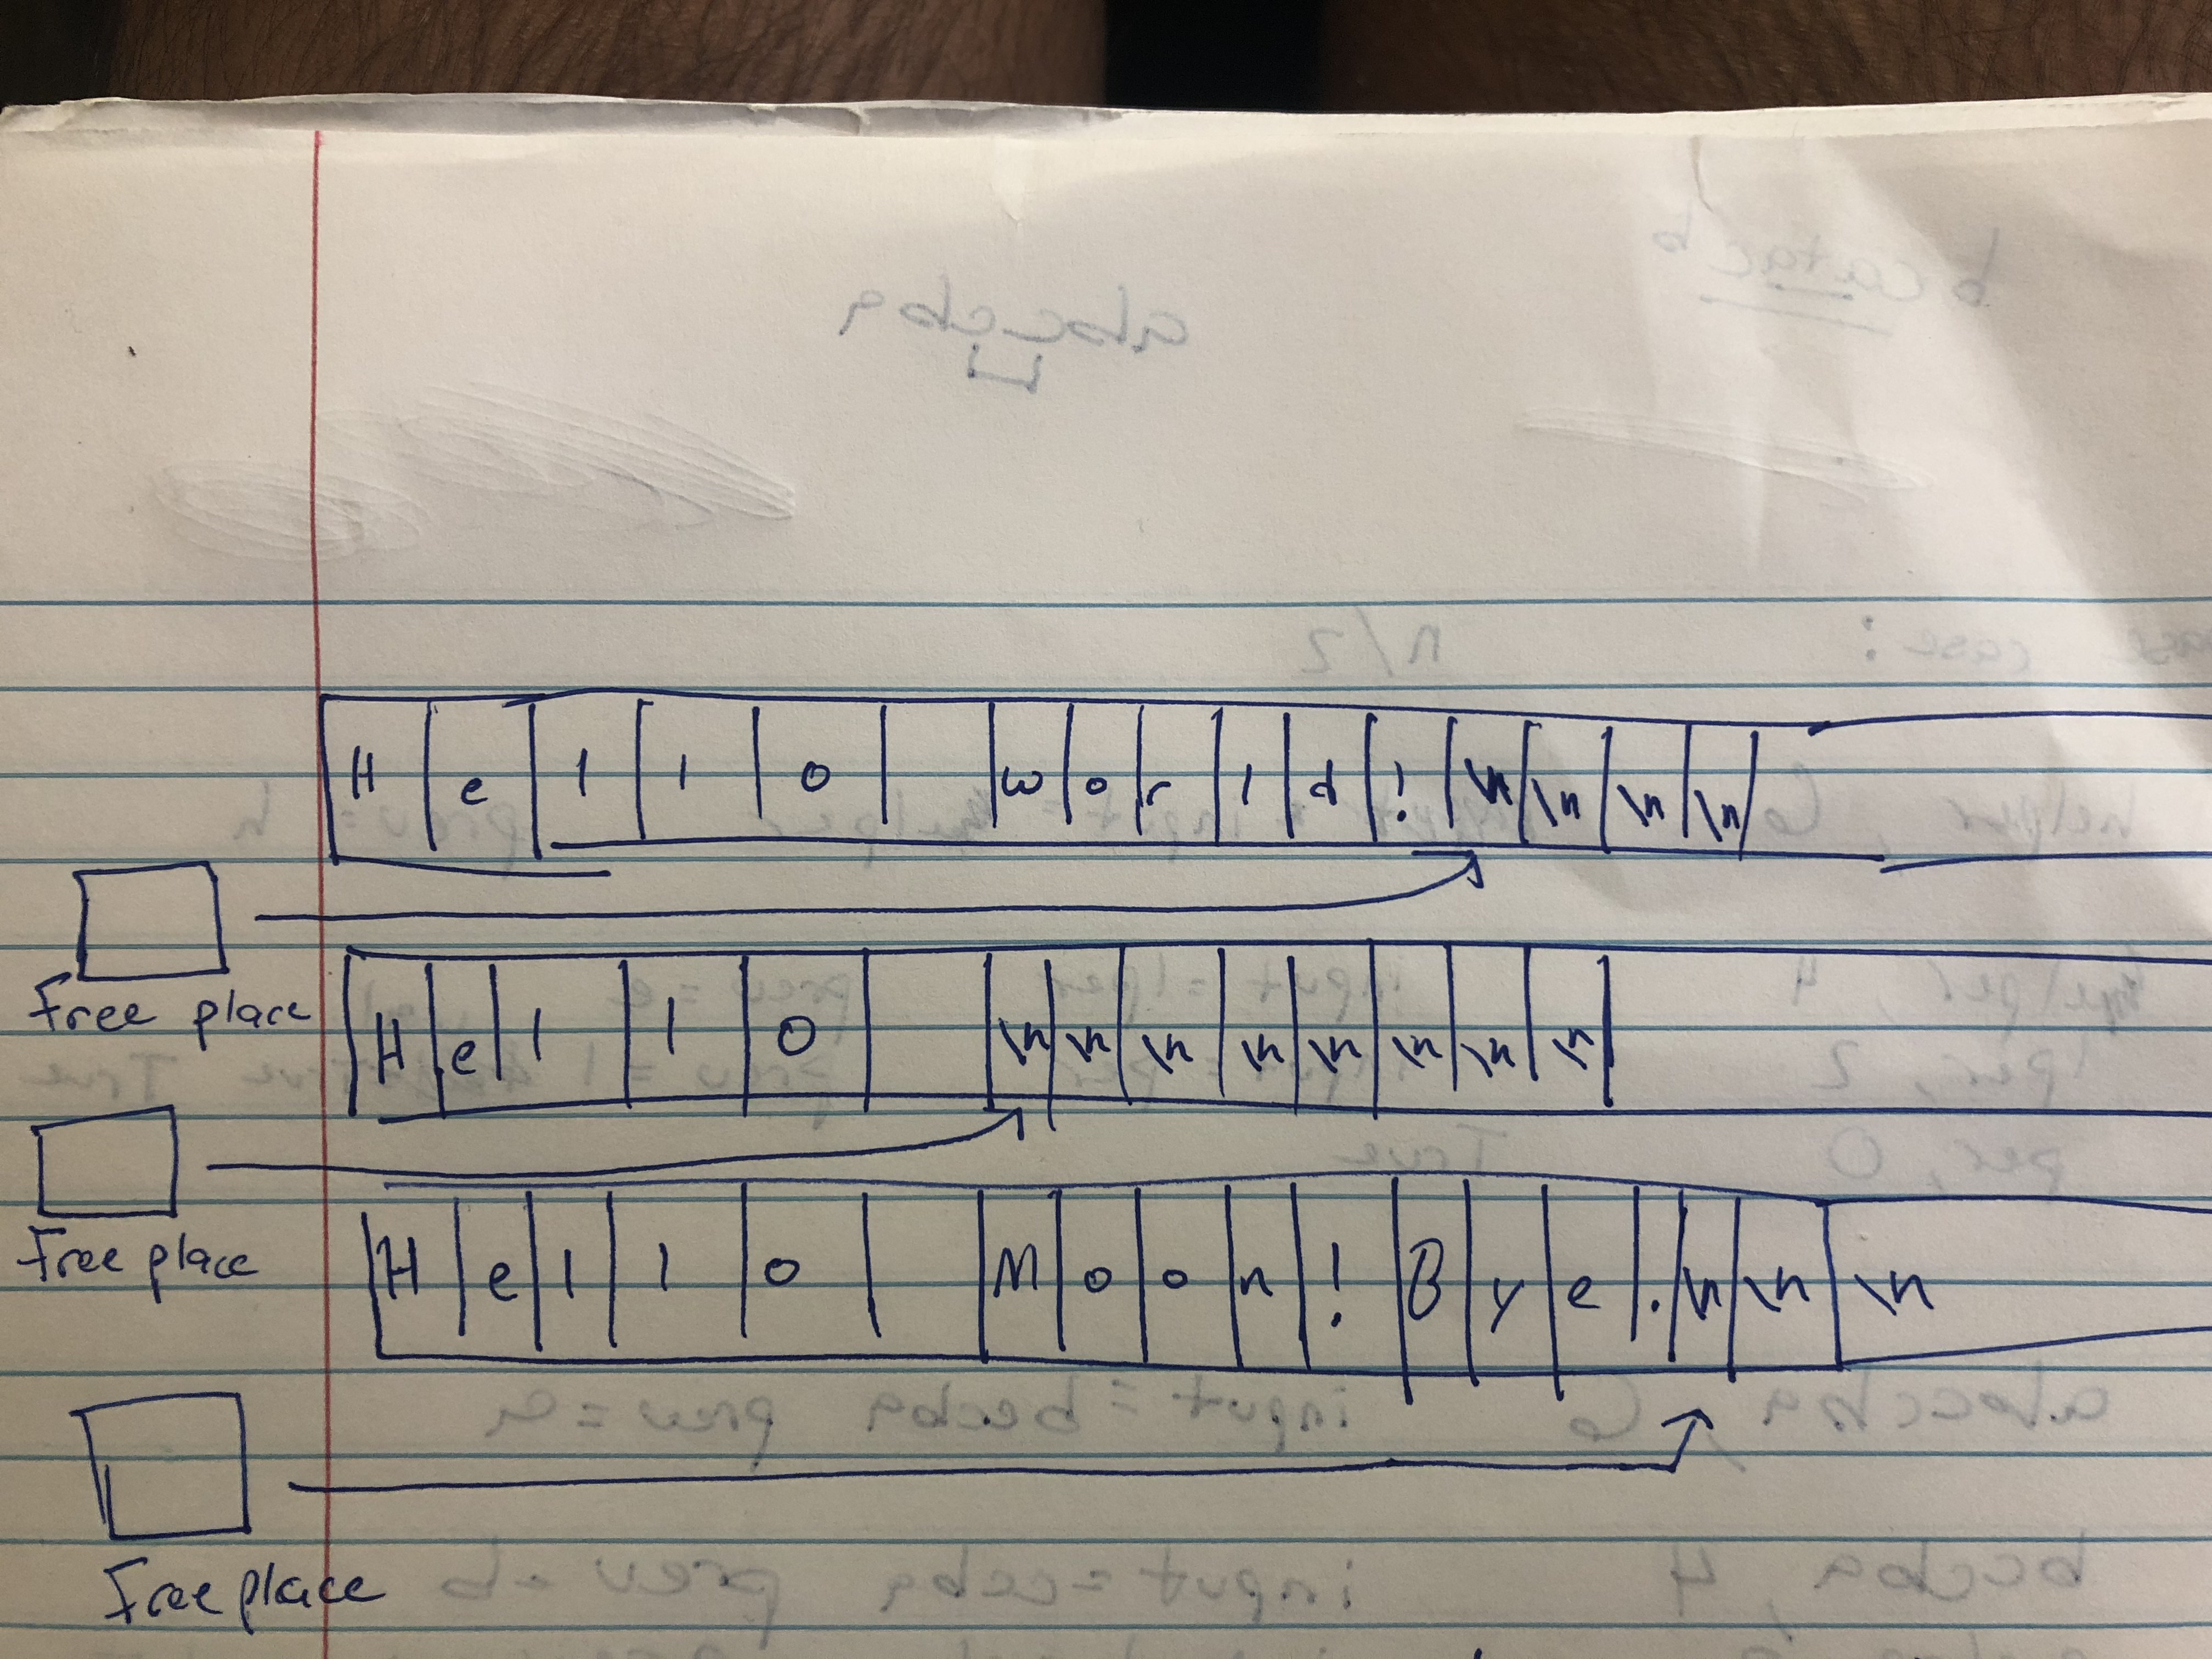 H e l l o w o r l d ! \n \n \n \n
Free place
H e l l o \n \n \n \n \n \n \n \n
Free place
H e l l o M o o n ! B y e . \n \n \n
Free place